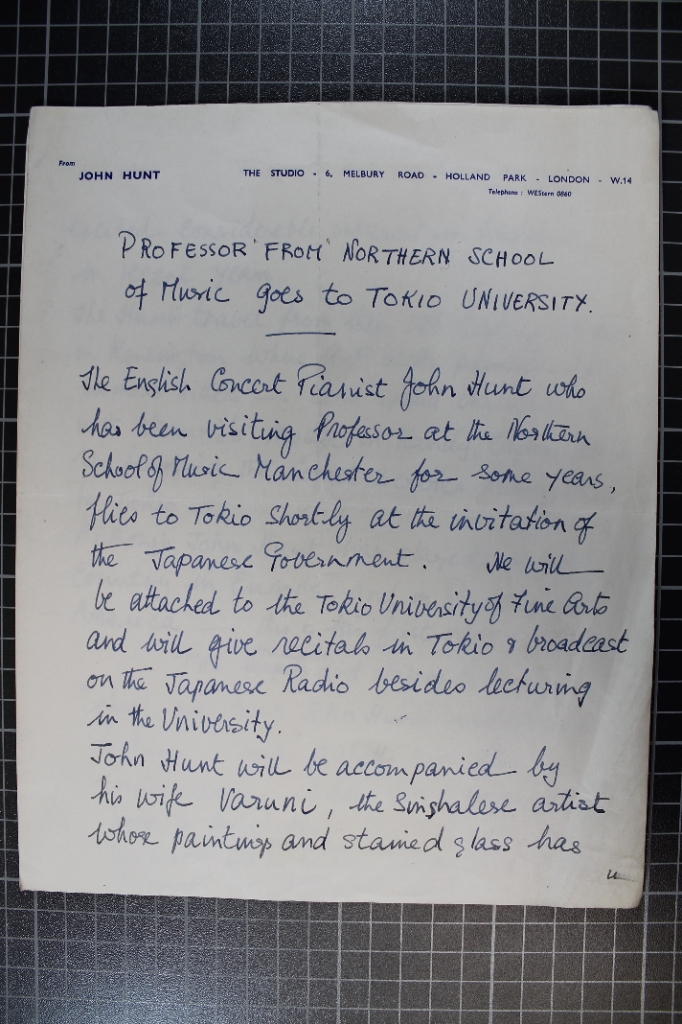 From
JOHN HUNT
THE STUDIO - 6, MELBURY ROAD - HOLLAND PARK - LONDON - W.14
Telephone : WEStern 0860
PROFESSOR FROM NORTHERN SCHOOL
of Music goes to TOKIO UNIVERSITY.
The English Concert Pianist John Hunt who
has been visiting Professor at the Northern
School of Music Manchester for some years,
flies to Tokio shortly at the invitation of
the Japanese Government. He will
be attached to the Tokio University of Fine Arts
and will give recitals in Tokio & broadcast
on the Japanese Radio besides lecturing
in the University.
John Hunt will be accompanied by
his wife Varuni, the Singhalese artist
whose paintings and stained glass has